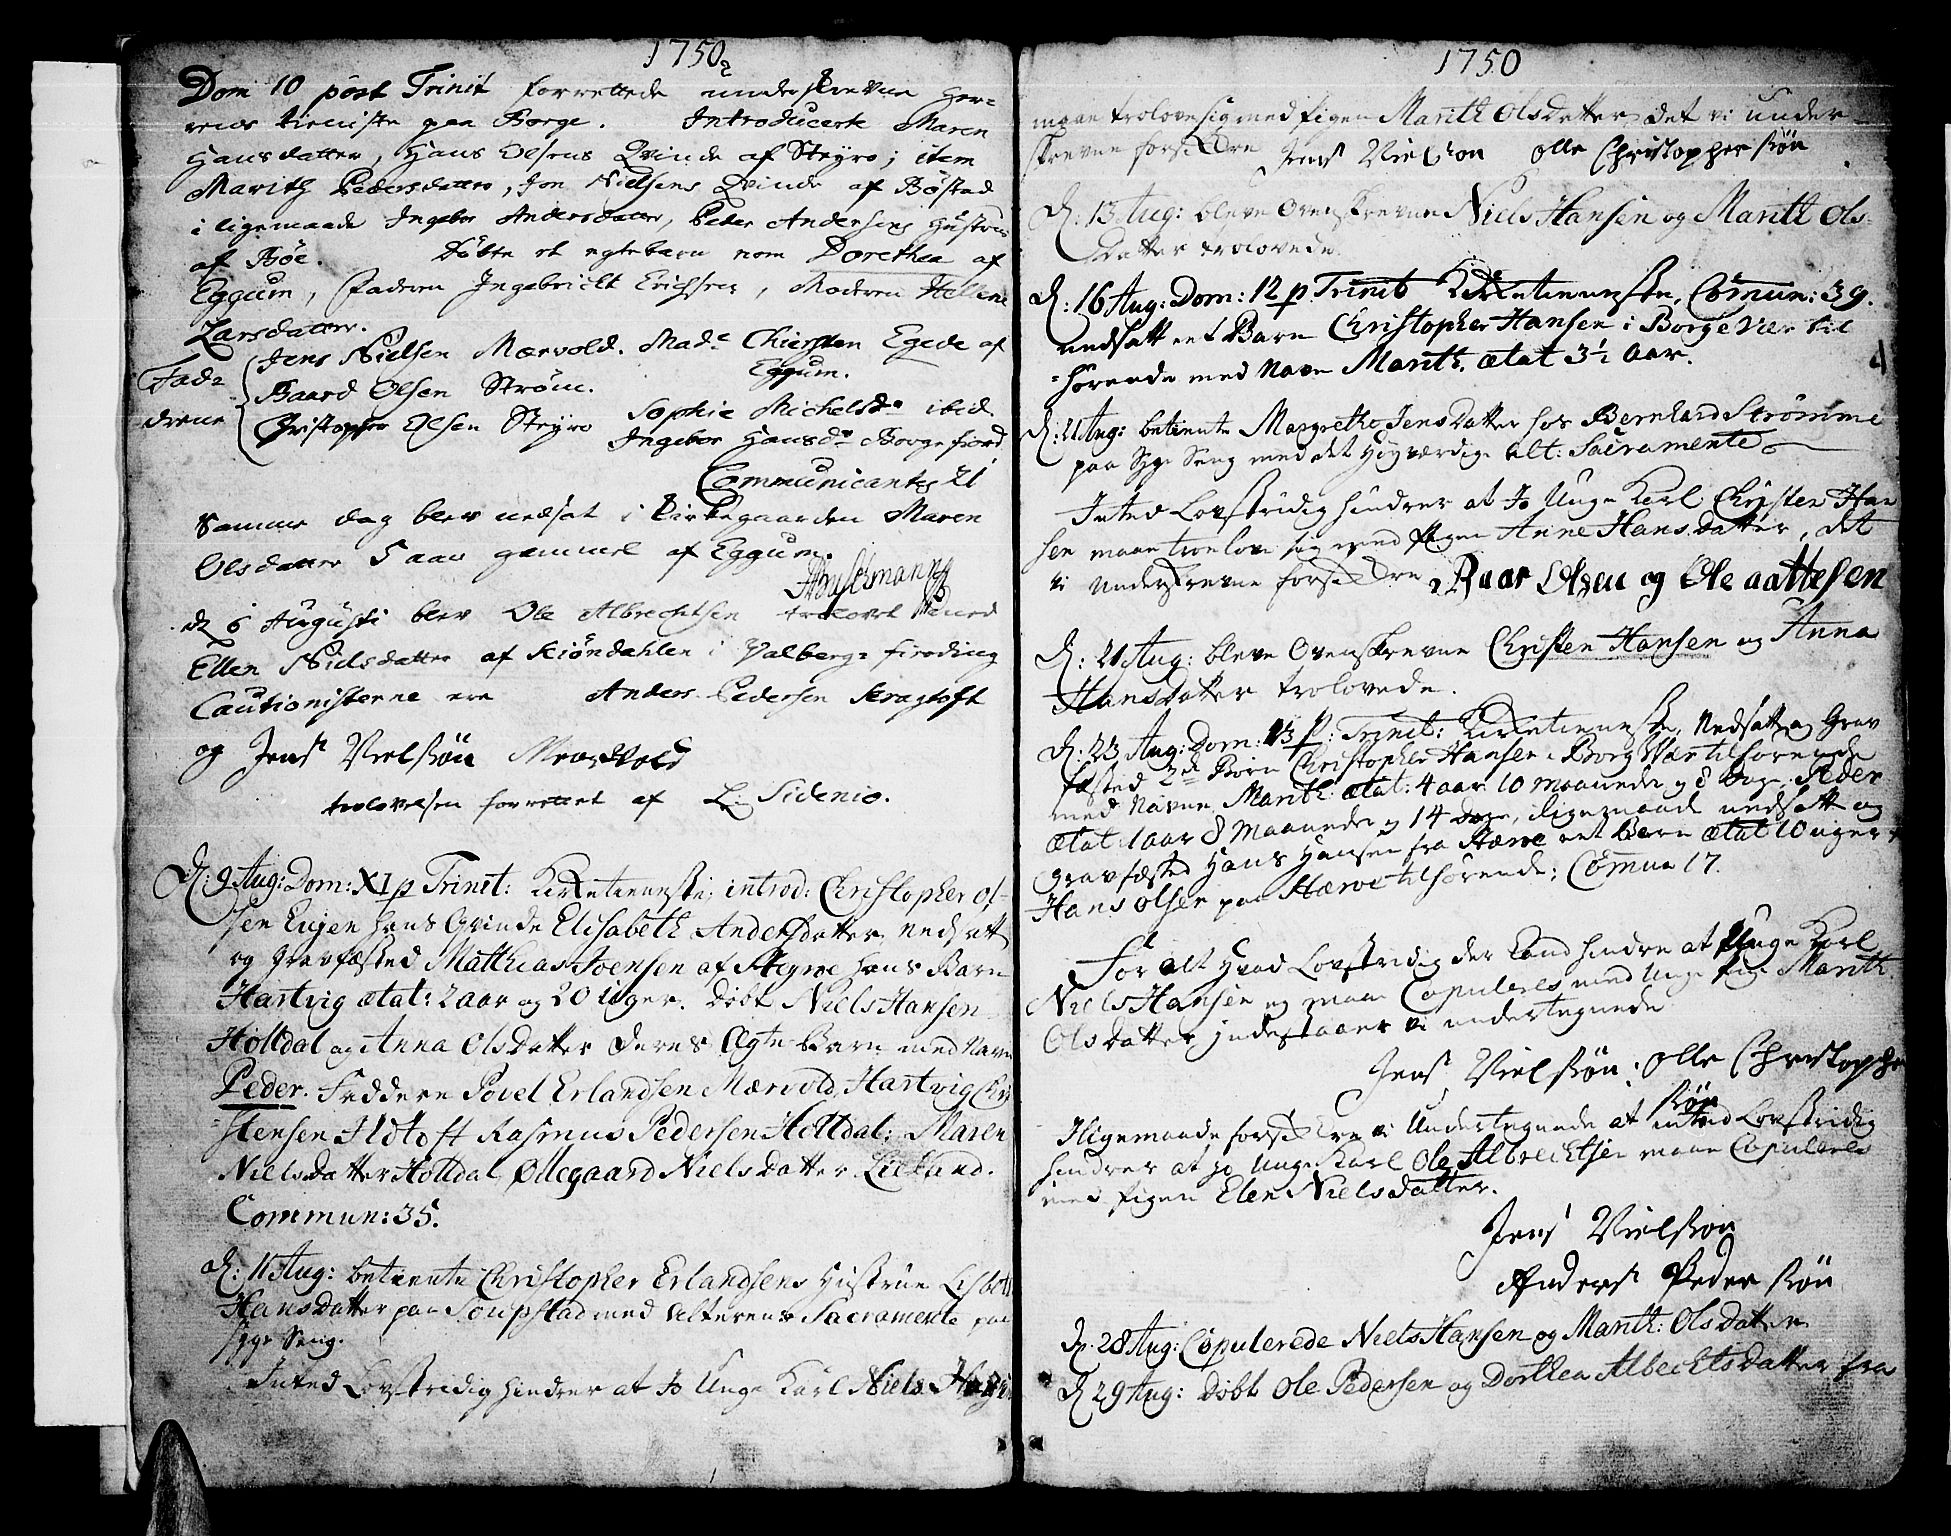 1750
Dom 10 post Trinit forrettede underskrevne Her-
rens tieniste paa Borge. Introducerte Maren
Hansdatter, Hans Olsens Qvinde af Steyro; item
Marith Pedersdatter, Jon Nielsens Qvinde af Bøstad
i ligemaade Ingebor Andersdatter, Peder Andersens Hustrue
af Bøe. Døbte et egtebarn nom Dorethea af
Eggum, Faderen Ingebricht Erichsen, Moderen Hellene
Larsdatter.
Fad-
drene
Jens Nielsen Mærvold. Mad: Chiersten Egede af
Eggum.
Baard Olsen Strøm.
Sophie Michelsd: ibid.
Christopher Olsen Steyro Ingebor Hansd: Borgefiord
Communicantes 21
Samme dag blev nedsat i Kirkegaarden Maren
Olsdatter 5 aar gammel af Eggum.
d 6 Augusti blev Ole Albrechtsen trolovet med
Ellen Nielsdatter af Kiøndahlen i Valberg-fierding
Cautionisterne ere Anders Pedersen Kragtoft
og Jens Nielsøn Mærvold
trolovelsen forrettet af L: Sidenio.
D: 9 Aug: Dom: XI p Trinit: Kirketienneste; introd: Christopher Ol-
sen Eujen hans Qvinde Elisabeth Andersdatter, nedsatt
og gravfæsted Matthias Joensen af Steyroe hans Barn
Hartvig ætat: 2 aar og 20 uger. Døbt Niels Hansen
Holtdal og Anna Olsdatter deres Ægte Barn med Navn
Peder. Faddere Povel Erlandsen Mærvold, Hartvig Chri-
stensen Holtoft Rasmus Pedersen Holtdal; Maren
Nielsdatter Holtdal Øllegaard Nielsdatter Lieland.
Commun: 35.
d: 11 Aug: betiente Christopher Erlandsens Hustrue Lisbett
Hansdatter paa Soupstad med Alterens Sacramente paa
Syge Seng.
Inted Lovstridig hindrer at Jo Unge Karl Niels Hansen
1750
maae trolove sig med Pigen Marith Olsdatter det vi under-
skrevne forsickre Jens Nielsøn Olle Christophersøn
d: 13 Aug: bleve Ovenskrevne Niels Hansen og Marith Ols-
datter trolovede.
d: 16 Aug: Dom: 12 p. Trinit Kirketienneste, Comun: 39.
nedsatt et Barn Christopher Hansen i Borge Vær til
hørende med Navn Marith. ætat 3½ aar.
d: 21 Aug: betiente Margrethe Jensdatter hos Bernhard Strømme
paa Syge Seng med det Høyværdige Alt: Sacramente
Inted Lovstridig hindrer at Jo Unge Karl Christen Han
sen maae troelove sig med Pigen Anne Hansdatter, det
vi underskrevne forsickre Baar Olsen og Ole aattesen
d: 21 Aug: bleve Ovenskrevne Christen Hansen og Anna
Hansdatter trolovede.
d: 23 Aug: Dom: 13 p: Trinit: Kirketienneste, Nedsatt og Grav
fæsted 2de Børn Christopher Hansen i Borg Vær tilhørende
med Navne Marith: ætat: 4 aar 10 maaneder og 8 Dage, Peder
ætat: 1 aar 8 Maaneder og 14 Dage, iligemaade nedsatt og
gravfæsted Hans Hansen fra Hærve eet Barn ætat 10 uger
Hans Olsen paa Hærve tilhørende; Comun 17.
For alt hvad Lovstridig der kand hindre at Unge Karl
Niels Hansen ey maae Copuleres med Unge Pige Marith
Olsdatter indestaaer vi undertegnede
Jens Nielsøn: Olle Christopher
søn
Iligemaade forsickre vi Undertegnede at inted Lovstridig
hindrer at Jo Unge Karl Ole Albrechtsen maae Copuleres
med Pigen Elen Nielsdatter.
Jens Nielsøn
Anders Pedersøn
D. 28 Aug: Copulerede Niels Hansen og Marith: Olsdatter
d 29 Aug: døbt Ole Pedersen og Dorthea Albechtsdatter fra